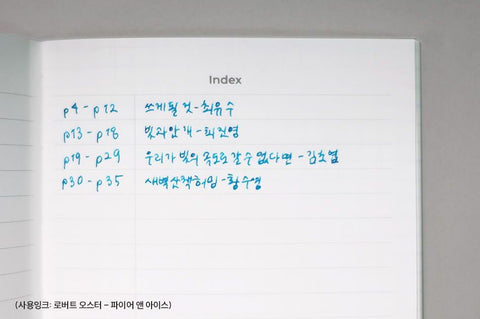 Index
p4 - p12 쓰게될 것 - 최유수
p13 - p18 빛과 안개 - 최진영
p19 - p29 우리가 빛의 속도로 갈 수 없다면 - 김초엽
p30 - p35 새벽산책허밍 - 황수영
(사용잉크: 로버트 오스터 – 파이어 앤 아이스)